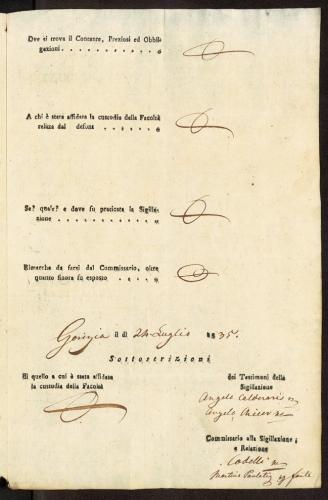 Dve si trova il Contante, Preziosi ed Obbli-
gazioni
A chi è stata affidata la custodia della Facoltà
relitta dal defunt
Se? quale? e dove fu praticata la Sigilla-
zione
Rimarche da farsi dal Commissario, oltre
quanto finora fu esposto
Gorizia il dì 24 Luglio 1835.
Sottoscrizioni
Di quello a cui è stata affidata
la custodia della Facoltà
dei Testimoni della
Sigillazione
Angelo Calderari
Angelo
Commissario alla Sigillazione ;
e Relazione
Codelli